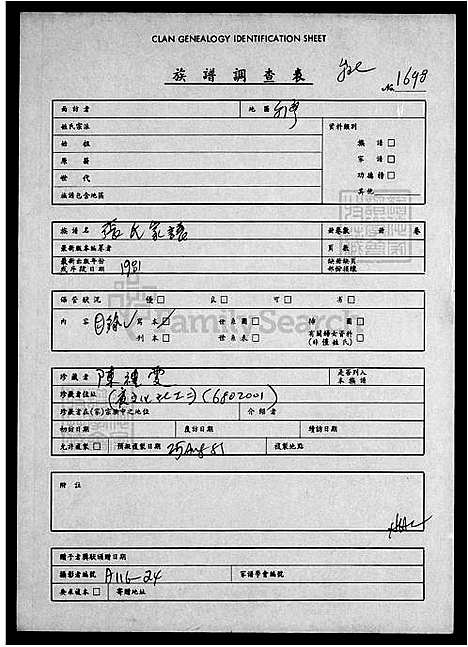 CLAN GENEALOGY IDENTIFICATION SHEET
族譜調查表
No. 1698
面訪者 地區 台灣
姓氏宗派 資料類別
始祖 族譜 □
原籍 家譜 □
世代 功德榜 □
族譜包含地區 其他
族譜名 張氏家譜 冊卷數 冊 卷
最新版本編著者 頁數
最新出版年份或斗段日期 1981 缺冊缺頁部份損壞
保管狀況 優 □ 良 □ 可 □ 劣 □
內容 目錄 ✓ 寫本 ☑ 世系圖 □ 插圖 □
刊本 □ 世系表 □ 有關婦女資料(非僅姓氏) □
FamilySearch
珍藏者 陳 雯 是否列入本族譜
珍藏者住址 (6802001)
珍藏者在(家)宗族中之地位 介紹者
初訪日期 復訪日期 續訪日期
允許複製 □ 預擬複製日期 25 Aug 81 複製地點
附註
贈予者獎狀頒贈日期
攝影者編號 A116-24 家譜學會編號
要求複本 □ 寄贈地址